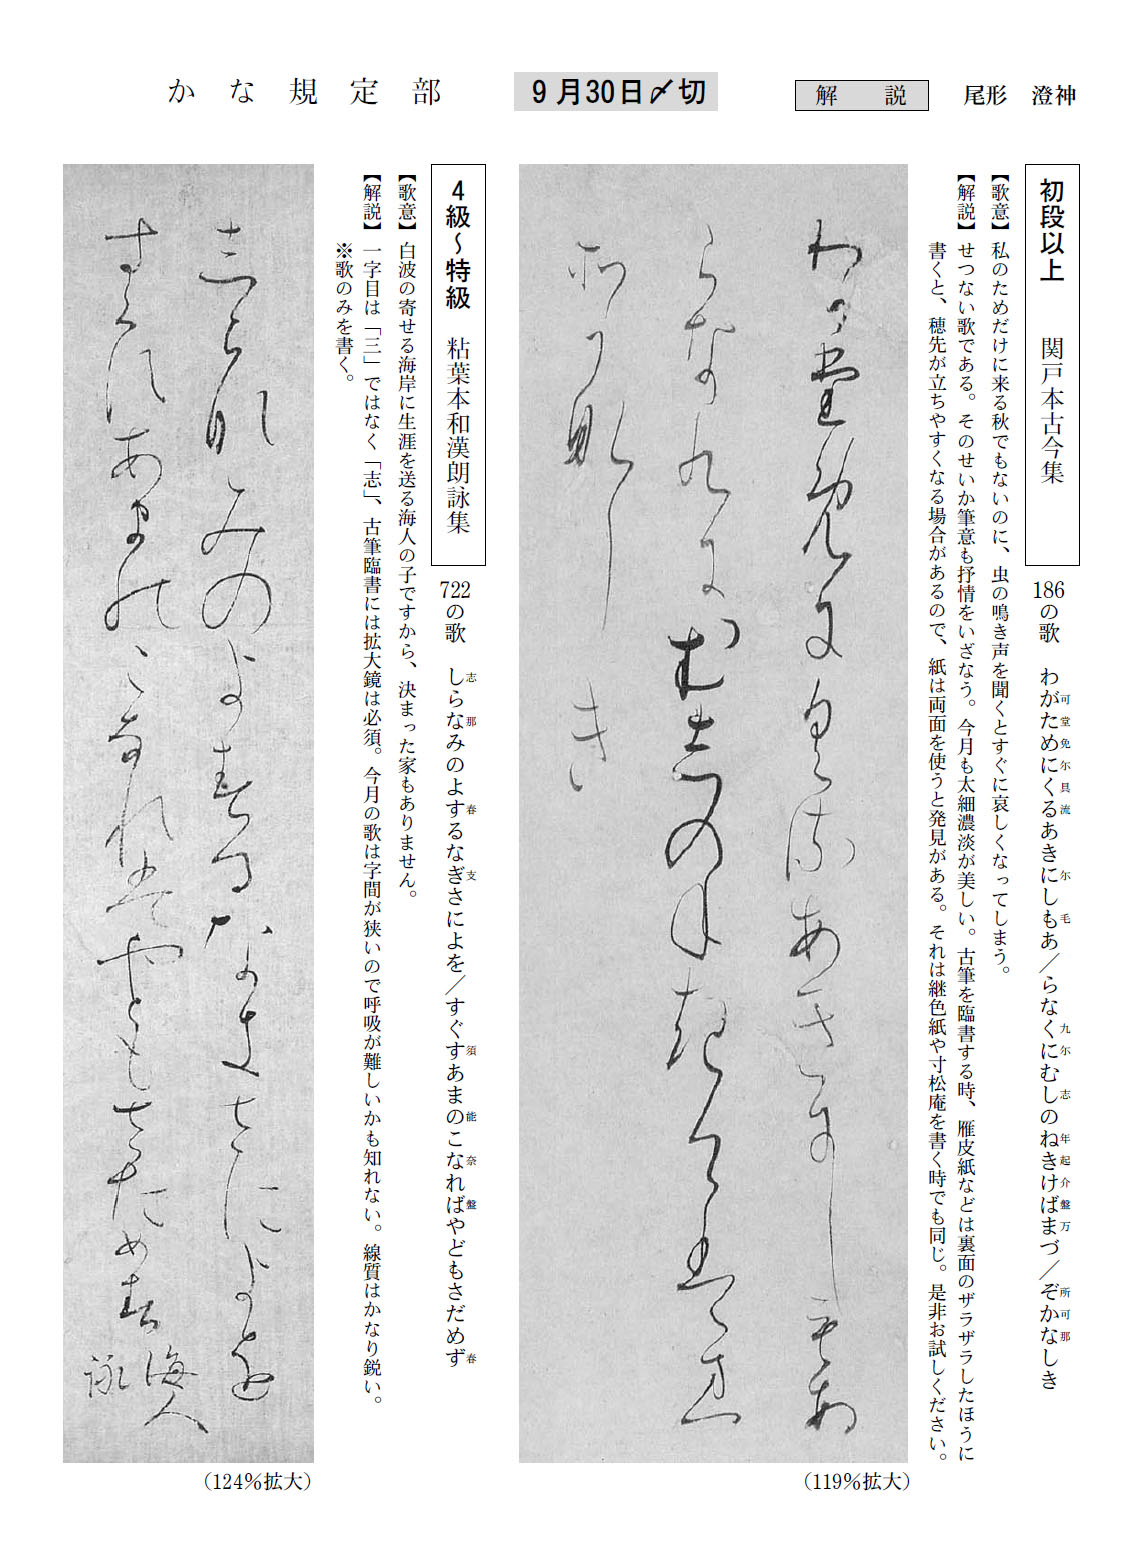 かな規定部
9月30日〆切
解説
尾形 澄神
初段以上 関戸本古今集
186の歌 わがためにくるあきにしもあ／らなくにむしのねきけばまづ／ぞかなしき
可堂免尓具流尓毛九尓志年起介盤万所可那
【歌意】私のためだけに来る秋でもないのに、虫の鳴き声を聞くとすぐに哀しくなってしまう。
【解説】せつない歌である。そのせいか筆意も抒情をいざなう。今月も太細濃淡が美しい。古筆を臨書する時、雁皮紙などは裏面のザラザラしたほうに
書くと、穂先が立ちやすくなる場合があるので、紙は両面を使うと発見がある。それは継色紙や寸松庵を書く時でも同じ。是非お試しください。
わ可堂免尓具流あきにしも毛あ
らな九尓むし志のね年起介盤万
所可那し
き
(119%拡大)
4級～特級 粘葉本和漢朗詠集
722の歌 しらなみのよするなぎさによを／すぐすあまのこなればやどもさだめず
志那春支須能奈盤春
【歌意】白波の寄せる海岸に生涯を送る海人の子ですから、決まった家もありません。
【解説】一字目は「三」ではなく「志」、古筆臨書には拡大鏡は必須。今月の歌は字間が狭いので呼吸が難しいかも知れない。線質はかなり鋭い。
※歌のみを書く。
志ら那みのよ春るな支さによを
すぐ須あま能こ奈れ盤やどもさだめ春
海人
詠
(124%拡大)